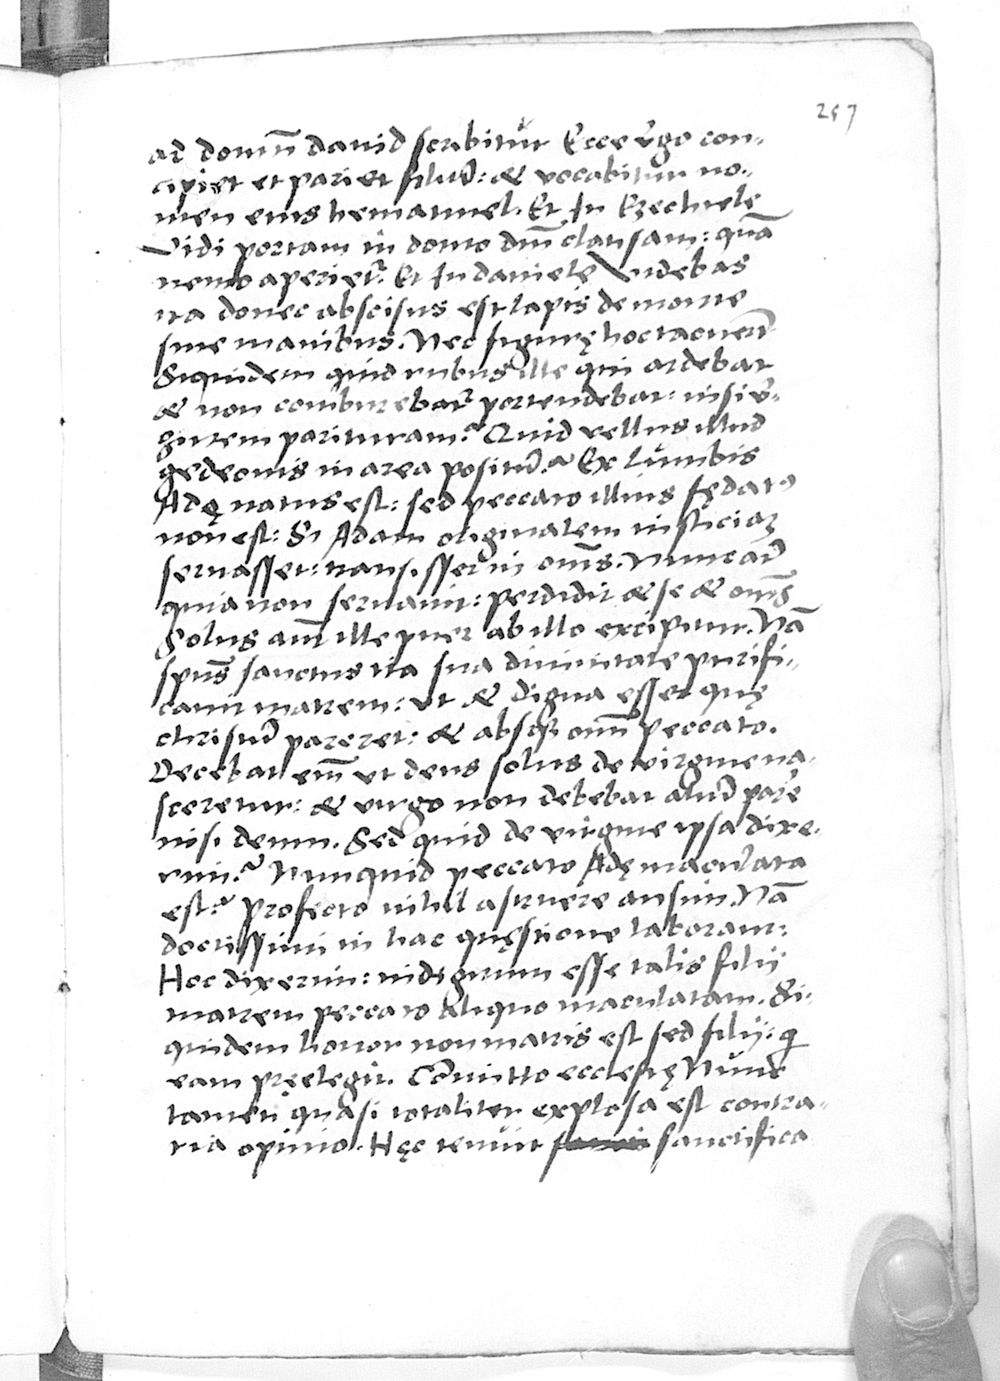 257
ad domū dauid scribitur Ecce v̄go con-
cipiet et pariet filiū: & vocabitur no-
men eius hemanuel. Et In Ezechiele
Vidi portam in domo dn̄i clausam: quā
nemo aperiet? Et In daniele Videbas
ita donec abscisus est lapis de monte
sine manibus. Nec figurę hoc tacuerūt
Siquidem quid rubus ille qui ardebat
& non comburebat̄ portendebat: nisi v̄-
ginem parituram? Quid vellus illud
gedeonis in area positū? Ex lumbis
Adę natus est: sed peccato illius fędat9
non est: Si Adam originalem iusticiaꝫ
seruasset: transisset in om̄s. Nunc aūt
quia non seruauit: perdidit & se & om̄s
Solus aūt ille puer ab illo excipitur. Nā
spūs sanctus ita sua diuinitate purifi-
cauit matrem: ut & digna esset quę
christū pareret: & absqꝫ omī peccato.
Decebat em̄ ut deus solus de virgine na-
sceretur: & virgo non debebat aliud parē
nisi deum. Sed quid de virgine ipsa dixe-
rim? Nunquid peccato Adę maculata
est? profecto nihil astruere ausim. Nā
doctissimi in hac quęstione laborant:
Hoc dixerim: indignum esse talis filij
matrem peccato aliquo maculatam. Si-
quidem honor non matris est sed filij: q̄
eam pręelegit. Com̄itto ecclesię Nunc
tamen quasi totaliter explosa est contra-
ria opinio. Hęc tenuit sanctifica